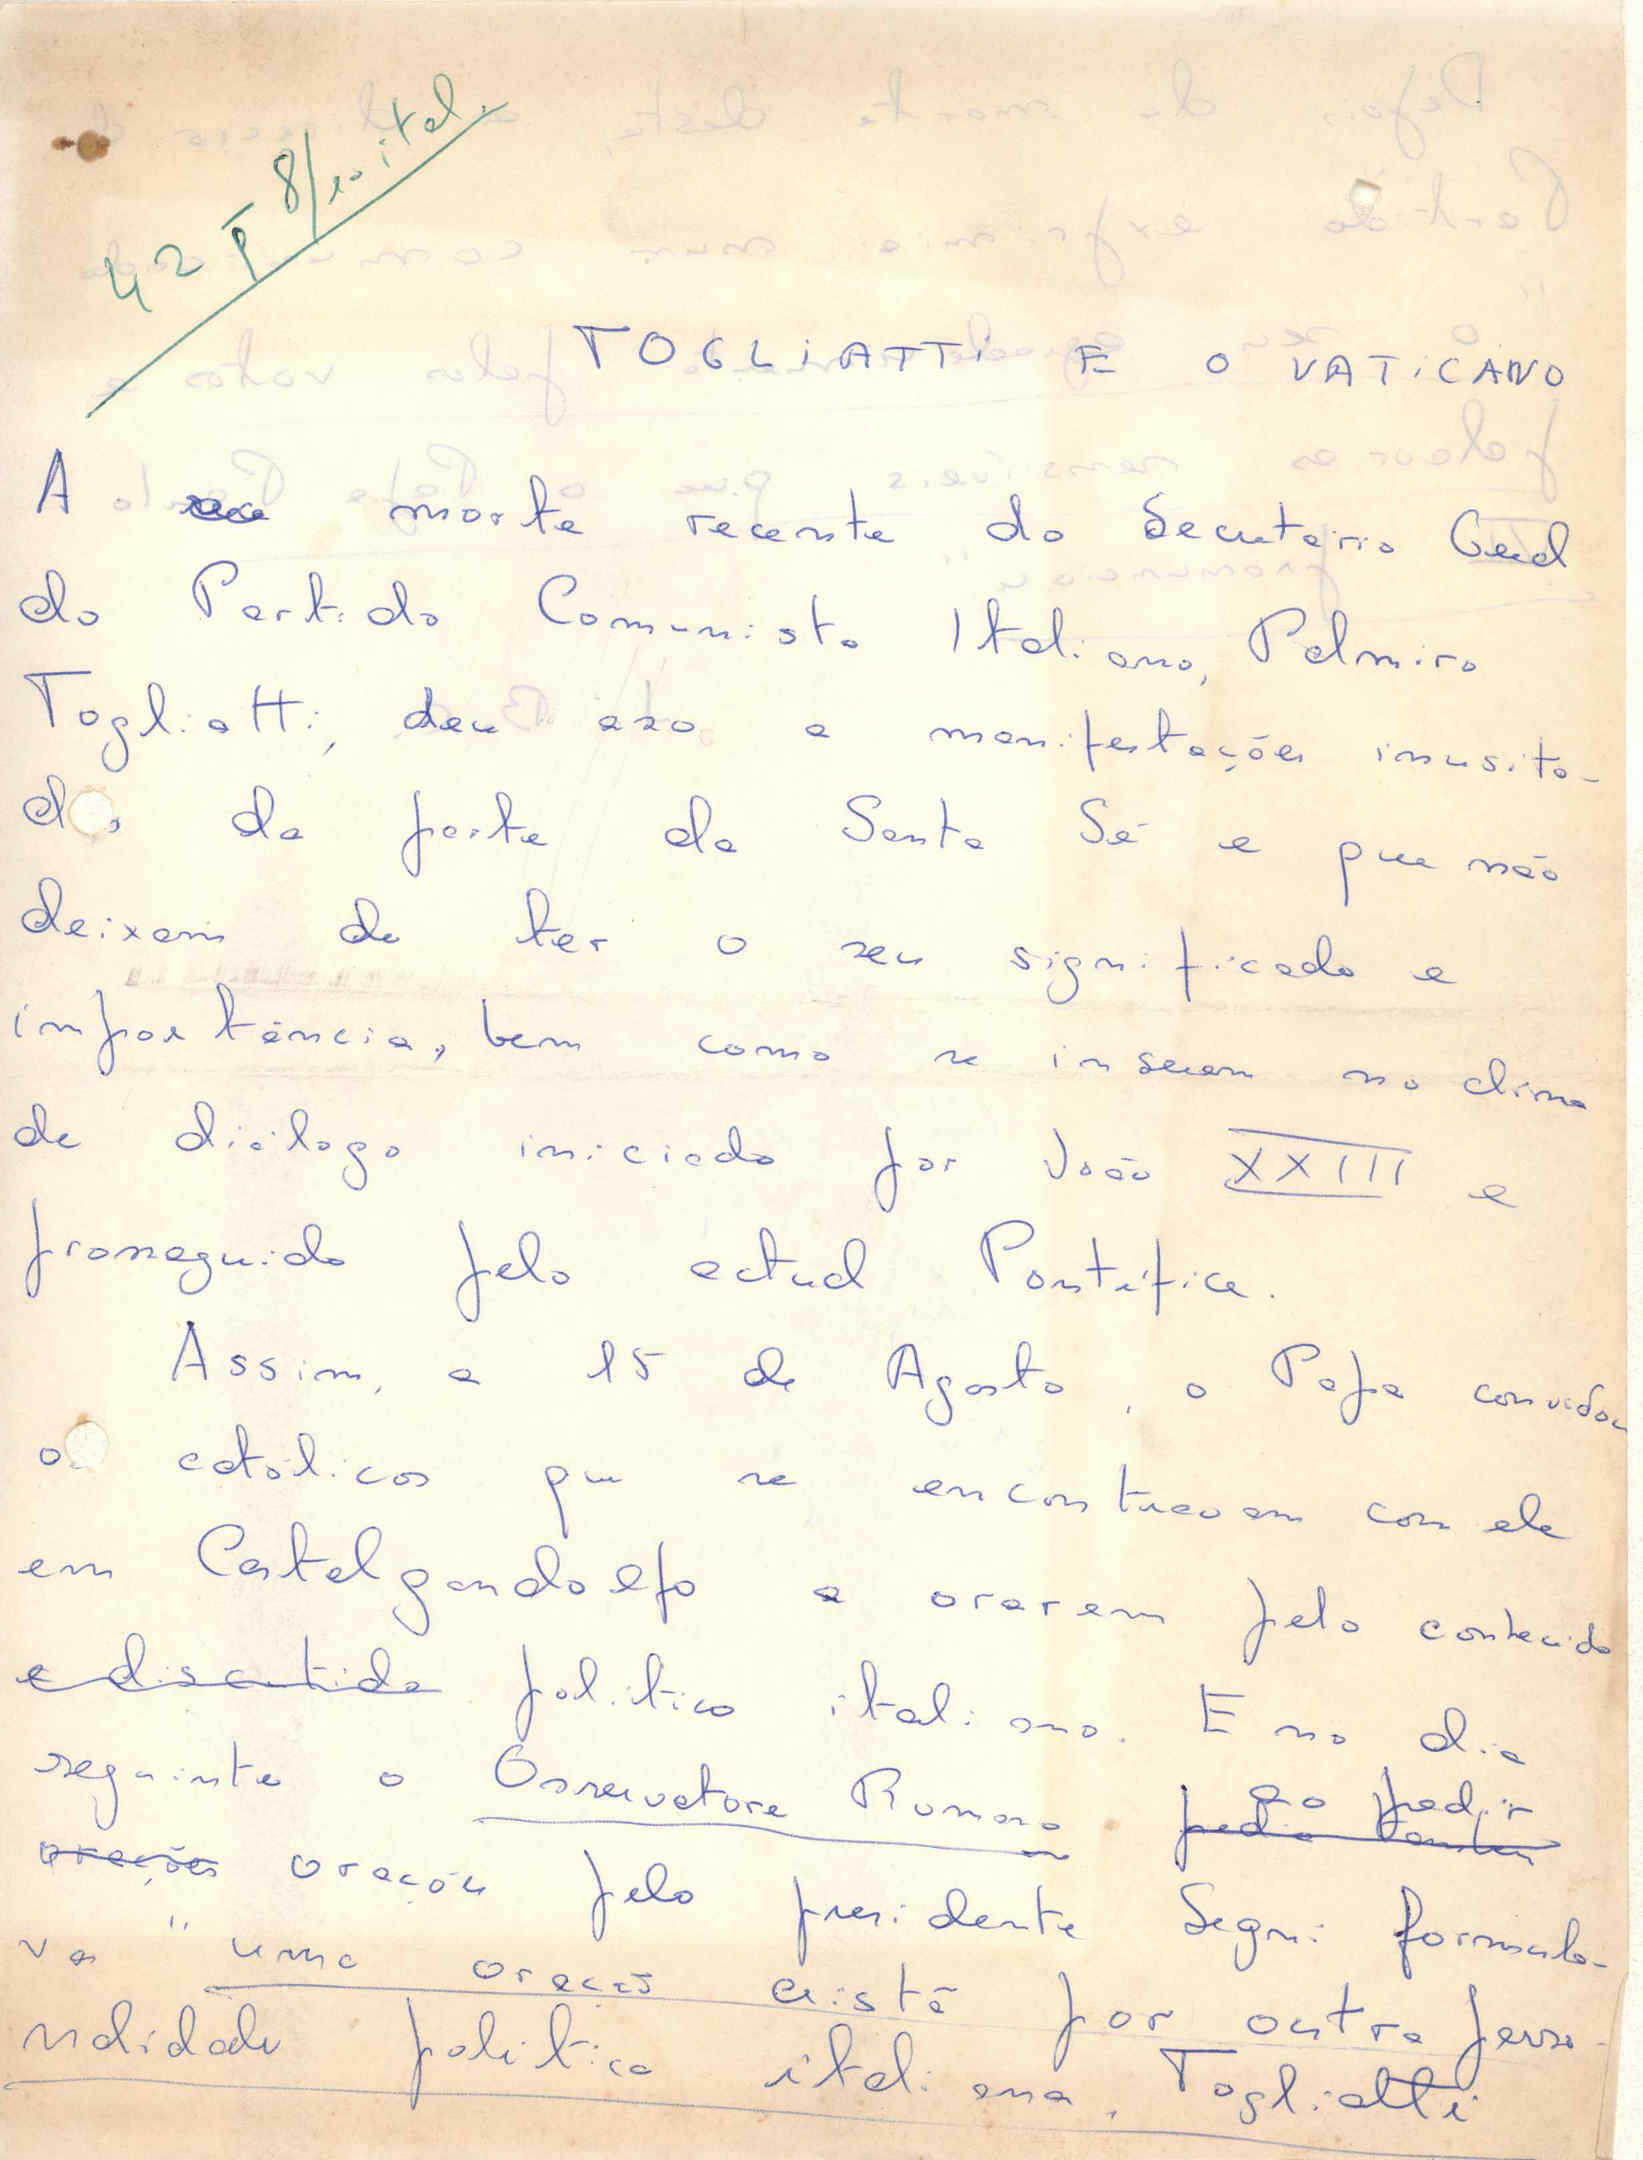 42 P 8/10 ital.
TOGLIATTI E O VATICANO
A morte recente do Secretário Geral
do Partido Comunista Italiano, Palmiro
Togliatti, deu azo a manifestações inusita-
das da parte da Santa Sé e que não
deixam de ter o seu significado e
importância, bem como se inserem no clima
de diálogo iniciado por João XXIII e
prosseguido pelo actual Pontífice.
Assim, a 15 de Agosto, o Papa convidou
os católicos que se encontravam com ele
em Castelgandolfo a orarem pelo conhecido
e discutido político italiano. E no dia
seguinte o Osservatore Romano pedia também ao pedir
orações orações pelo presidente Segni formula-
va "uma oração cristã por outra perso-
nalidade política italiana, Togliatti